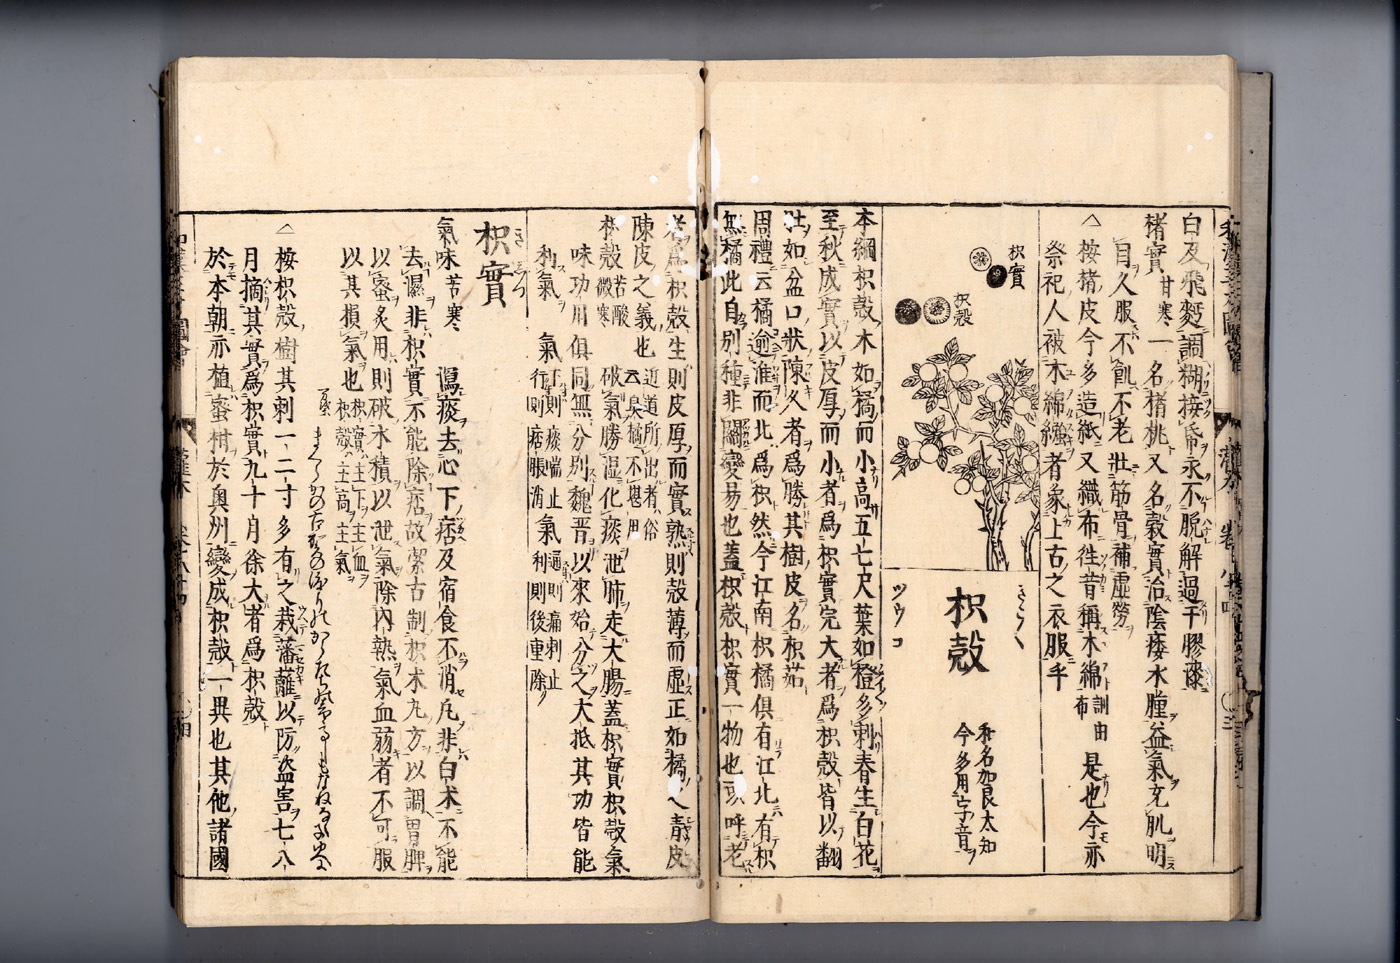 白及飛麪調糊接帋永不脫解過于膠漆
楮實 甘寒 一名楮桃又名穀實治陰痿水腫益氣充肌明
目久服不飢不老壯筋骨補虛勞
△按楮皮今多造紙又織布徃昔稱木綿 訓由布 是也今亦
祭祀人被木綿繦者象上古之衣服乎
枳實
枳殼
枳殼
きこく
ツウコ
和名加良太知
今多用字音
本綱枳殼木如橘而小高五七尺葉如橙多刺春生白花
至秋成實以皮厚而小者爲枳實完大者爲枳殼皆以翻
肚如盆口狀陳久者爲勝其樹皮名枳茹
周禮云橘逾淮而北爲枳然今江南枳橘俱有江北有枳
無橘此自別種非關變易也蓋枳殼枳實一物也 呼老
者爲枳殼生則皮厚而實熟則殼薄而虛正如橘之靑皮
陳皮之義也 道道所出者俗云臭橘不堪用
枳殼 苦酸微寒 破氣勝濕化痰泄肺走大腸蓋枳實枳殼氣
味功用俱同無分別魏晋以來始分之大抵其功皆能
利氣 氣下則痰喘止氣行則痞脹消氣通則痛刺止氣利則後重除
枳實
きじつ
氣味 苦寒 瀉痰去心下痞及宿食不消凡非白朮不能
去濕非枳實不能除痞故潔古制枳朮丸方以調胃脾
以蜜炙用則破水積以泄氣除內熱氣血弱者不可服
以其損氣也 枳實主下主血枳殼主高主氣
△按枳殼樹其刺一二寸多有之栽藩蘺以防盜害七八
月摘其實爲枳實九十月徐大者爲枳殼
於本朝亦植蜜柑於奥州變成枳殼一異也其他諸國